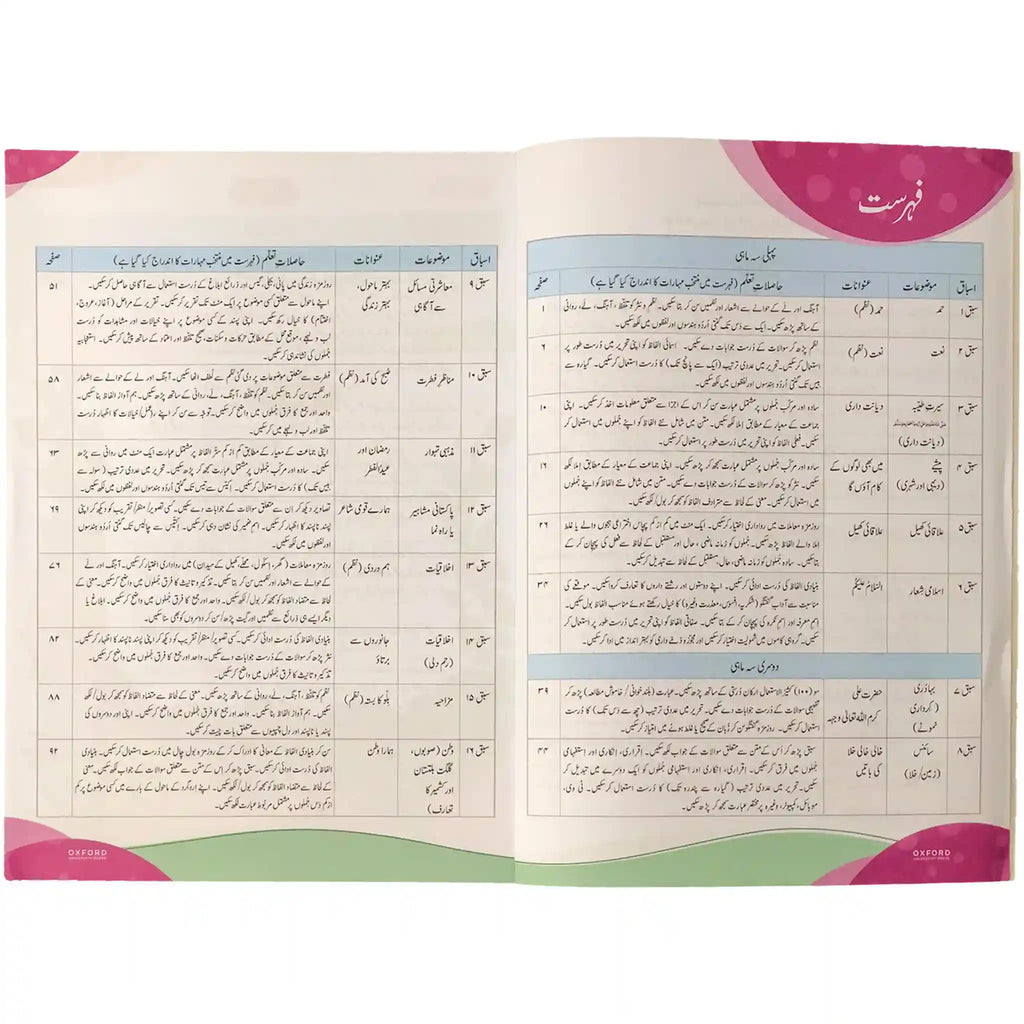 فہرست
پہلی سہ ماہی
اسباق موضوعات عنوانات حاصلاتِ تعلّم (فہرست میں منتخب مہارات کا اندراج کیا گیا ہے) صفحہ
سبق ۱ حمد حمد (نظم) آہنگ اور لے کے حوالے سے اشعار اور نظمیں سن کر بتا سکیں۔ نظم و نثر کو تلفظ، آہنگ، لے، روانی ۱
کے ساتھ پڑھ سکیں۔ ایک سے دَس تک گنتی اُردُو ہندسوں اور لفظوں میں لکھ سکیں۔
سبق ۲ نعت نعت (نظم) نظم پڑھ کر سوالات کے درست جوابات دے سکیں۔ اسمائی الفاظ کو اپنی تحریر میں درست طور پر ۶
استعمال کر سکیں۔ تحریر میں عددی ترتیب (ایک سے پانچ تک) کا درست استعمال کر سکیں۔ گیارہ سے
بیس تک گنتی اُردُو ہندسوں اور لفظوں میں لکھ سکیں۔
سبق ۳ سیرتِ طیّبہ دیانت داری سادہ اور مرکّب جملوں پر مشتمل عبارت سن کر اس کے اجزا سے متعلق معلومات اخذ کر سکیں۔ اپنی ۱۰
(دیانت داری) جماعت کے معیار کے مطابق املا لکھ سکیں۔ متن میں شامل نئے الفاظ کو اپنے جملوں میں استعمال کر
سکیں۔ فعلی الفاظ کو اپنی تحریر میں درست طور پر استعمال کر سکیں۔
سبق ۴ پیشے میں بھی لوگوں کے سادہ اور مرکّب جملوں پر مشتمل عبارت سمجھ کر پڑھ سکیں۔ اپنی جماعت کے معیار کے مطابق املا لکھ ۱۶
(دیہی اور شہری) کام آؤں گا سکیں۔ نثر کو پڑھ کر سوالات کے درست جوابات دے سکیں۔ متن میں شامل نئے الفاظ کو اپنے جملوں
میں استعمال کر سکیں۔ معنی کے لحاظ سے مترادف الفاظ کو سمجھ کر بول/لکھ سکیں۔
سبق ۵ علاقائی کھیل علاقائی کھیل روزمرہ معاملات میں رواداری اختیار کر سکیں۔ ایک منٹ میں کم از کم پچاس اختراعی ہجّوں والے یا غلط ۲۶
املا والے الفاظ پڑھ سکیں۔ جملوں کو زمانہ ماضی، حال اور مستقبل کے لحاظ سے فعل کی پہچان کر کے
بتا سکیں۔ سادہ جملوں کو زمانہ ماضی، حال، مستقبل کے لحاظ سے تبدیل کر سکیں۔
سبق ۶ اسلامی شعار السّلامُ علیکم بنیادی الفاظ کی درست ادائی کر سکیں۔ اپنے دوستوں اور رشتے داروں کا تعارف کروا سکیں۔ موقعے کی ۳۴
مناسبت سے آدابِ گفتگو (شکریہ، افسوس، معذرت وغیرہ) کا خیال رکھتے ہوئے مناسب الفاظ بول سکیں۔
اسم معرفہ اور اسم نکرہ کی پہچان کر کے بتا سکیں۔ صفاتی الفاظ کو اپنی تحریر میں درست طور پر استعمال کر
سکیں۔ گروہی کاموں میں شمولیت اختیار کر سکیں اور مجوّزہ ذمّے داری کو بہتر انداز میں ادا کر سکیں۔
دوسری سہ ماہی
سبق ۷ بہادُری حضرت علی سو (۱۰۰) کثیر الاستعمال ارکان درستی کے ساتھ پڑھ سکیں۔ عبارت (بلند خوانی/ خاموش مطالعہ) پڑھ کر ۳۹
(کرداری کرم اللہ تعالٰی وجہہ تفہیمی سوالات کے درست جوابات دے سکیں۔ تحریر میں عددی ترتیب (چھ سے دَس تک) کا درست
نمونے) استعمال کر سکیں۔ روزمرہ گفتگو سن کر زُبان کے صحیح یا غلط ہونے میں امتیاز کر سکیں۔
سبق ۸ سائنس خالی خالی خلا سبق پڑھ کر اُس کے متن سے متعلق سوالات کے جواب لکھ سکیں۔ اقراری، انکاری اور استفہامی ۴۴
(زمین/خلا) کی باتیں جملوں میں فرق کر سکیں۔ اقراری، انکاری اور استفہامی جملوں کو ایک دوسرے میں تبدیل کر
سکیں۔ تحریر میں عددی ترتیب (گیارہ سے پندرہ تک) کا درست استعمال کر سکیں۔ ٹی وی،
موبائل، کمپیوٹر، وغیرہ پر مختصر عبارت سمجھ کر پڑھ سکیں۔
OXFORD
UNIVERSITY PRESS
اسباق موضوعات عنوانات حاصلاتِ تعلّم (فہرست میں منتخب مہارات کا اندراج کیا گیا ہے) صفحہ
سبق ۹ معاشرتی مسائل بہتر ماحول، روزمرہ زندگی میں پانی، بجلی، گیس اور ذرائع ابلاغ کے درست استعمال سے آگاہی حاصل کر سکیں۔ ۵۱
سے آگاہی بہتر زندگی اپنے ماحول سے متعلق کسی موضوع پر ایک منٹ تک تقریر کر سکیں۔ تقریر کے مراحل (آغاز، عروج،
اختتام) کا خیال رکھ سکیں۔ اپنی پسند کے کسی موضوع پر اپنے خیالات اور مشاہدات کو درست
لب و لہجے، موقع محل کے مطابق حرکات و سکنات، صحیح تلفظ اور اعتماد کے ساتھ پیش کر سکیں۔ استعجابیہ
جملوں کی نشاندہی کر سکیں۔
سبق ۱۰ مناظرِ فطرت صُبح کی آمد (نظم) فطرت سے متعلق موضوعات پر دی گئی نظم سے لُطف اٹھا سکیں۔ آہنگ اور لے کے حوالے سے اشعار ۵۸
اور نظمیں سن کر بتا سکیں۔ نظم کو تلفظ، آہنگ، لے، روانی کے ساتھ پڑھ سکیں۔ ہم آواز الفاظ بنا سکیں۔
واحد اور جمع کا فرق جملوں میں واضح کر سکیں۔ توجہ سے سن کر اپنے ردِّعمل/خیالات کا اظہار درست
تلفظ اور لب و لہجے میں کر سکیں۔
سبق ۱۱ مذہبی تہوار رمضان اور اپنی جماعت کے معیار کے مطابق کم از کم ستّر الفاظ پر مشتمل عبارت ایک منٹ میں روانی سے پڑھ ۶۳
عیدُالفطر سکیں۔ سادہ اور مرکّب جملوں پر مشتمل عبارت سمجھ کر پڑھ سکیں۔ تحریر میں عددی ترتیب (سولہ سے
بیس تک) کا درست استعمال کر سکیں۔ اِکتیس سے تیس تک گنتی اُردُو ہندسوں اور لفظوں میں لکھ سکیں۔
سبق ۱۲ پاکستانی مشاہیر ہمارے قومی شاعر تصاویر کو دیکھ کر ان سے متعلق سوالات کے جوابات دے سکیں۔ کسی تصویر/منظر/تقریب کو دیکھ کر اپنی ۶۹
یا راہ نما پسند نا پسند کا اظہار کر سکیں۔ اسم ضمیر کی نشان دہی کر سکیں۔ اِکتیس سے چالیس تک گنتی اُردُو ہندسوں
اور لفظوں میں لکھ سکیں۔
سبق ۱۳ اخلاقیات ہم دردی (نظم) روزمرہ معاملات (گھر، اسکول، محلے، کھیل کے میدان) میں رواداری اختیار کر سکیں۔ آہنگ اور لے ۷۶
کے حوالے سے اشعار اور نظمیں سن کر بتا سکیں۔ تذکیر و تانیث کا فرق جملوں میں واضح کر سکیں۔ معنی کے
لحاظ سے متضاد الفاظ کو سمجھ کر بول/لکھ سکیں۔ واحد اور جمع کا فرق جملوں میں واضح کر سکیں۔ ابلاغ یا
دیگر ایسے ہی ذرائع سے نظمیں اور گیت پڑھ/سن کر دوسروں کو بھی سنا سکیں۔
سبق ۱۴ اخلاقیات جانوروں سے بنیادی الفاظ کی درست ادائی کر سکیں۔ کسی تصویر/منظر/تقریب کو دیکھ کر اپنی پسند نا پسند کا اظہار کر سکیں۔ ۸۲
(رحم دلی) برتاؤ نثر پڑھ کر سوالات کے درست جوابات دے سکیں۔ واحد اور جمع کا فرق جملوں میں واضح کر سکیں۔
تذکیر و تانیث کا فرق جملوں میں واضح کر سکیں۔
سبق ۱۵ مزاحیہ بلّو کا بستہ (نظم) نظم کو تلفظ، آہنگ، لے، روانی کے ساتھ پڑھ سکیں۔ معنی کے لحاظ سے متضاد الفاظ کو سمجھ کر بول/لکھ ۸۸
سکیں۔ ہم آواز الفاظ بنا سکیں۔ واحد اور جمع کا فرق جملوں میں واضح کر سکیں۔ اپنی اور دوسروں کی
پسند یا نا پسند اور دل چسپیوں سے متعلق بات چیت کر سکیں۔
سبق ۱۶ وطن (صوبوں، ہمارا وطن سن کر بنیادی الفاظ کے معانی کا ادراک کر کے روزمرہ بول چال میں درست استعمال کر سکیں۔ بنیادی ۹۲
گلگت بلتستان الفاظ کی درست ادائی کر سکیں۔ سبق پڑھ کر اس کے متن سے متعلق سوالات کے جواب لکھ سکیں۔ معنی
اور کشمیر کا کے لحاظ سے متضاد الفاظ کو سمجھ کر بول/لکھ سکیں۔ اپنے اردگرد کے ماحول کے بارے میں کسی موضوع پر کم
تعارف) از کم دَس جملوں پر مشتمل مربوط عبارت لکھ سکیں۔
OXFORD
UNIVERSITY PRESS